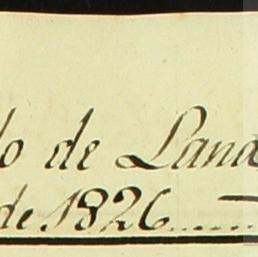 lo de Land
de 1826.......